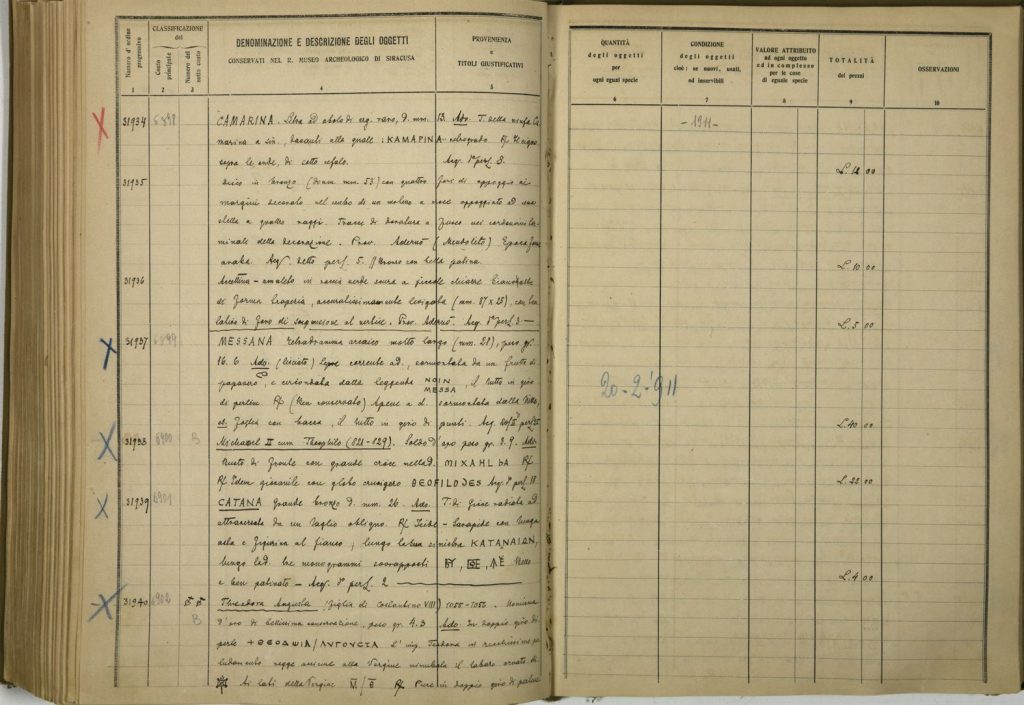 Numero d'ordine progressivo
CLASSIFICAZIONE del
Conto principale
Numero del sotto conto
DENOMINAZIONE E DESCRIZIONE DEGLI OGGETTI
CONSERVATI NEL R. MUSEO ARCHEOLOGICO DI SIRACUSA
PROVENIENZA
e
TITOLI GIUSTIFICATIVI
1 2 3 4 5
QUANTITÀ
degli oggetti
per
ogni egual specie
CONDIZIONE
degli oggetti
cioè: se nuovi, usati,
od inservibili
VALORE ATTRIBUITO
ad ogni oggetto
ed in complesso
per le cose
di eguale specie
TOTALITÀ
dei prezzi
OSSERVAZIONI
6 7 8 9 10
31934 6898 CAMARINA. Litra ad obolo di arg. raro, d. mm. 13. Ado. T. della ninfa Ca
marina a sin., davanti alla quale: KAMAPINA retrogrado R/ Il cigno
sopra le onde, di sotto cefalo. Acq. 1° perf. 3.
- 1911 -
L. 12 00
31935 Disco in bronzo (diam. mm. 53) con quattro fori di appoggio ai
margini decorato nel centro di un
stella a quattro raggi. Tracce di doratura a fuoco nei cordoncini ter
minali della decorazione. Prov. Adernò (Mendolito) Epoca
Acq. detto perf. 5. Bronzo con bella patina.
L. 10 00
31936 Accettina-amuleto in roccia verde scura a piccole chiazze
di forma, accuratissimamente levigata (mm. 37 x 25), con ten
tativo di foro di sospensione al vertice. Prov. Adernò. Acq. 1° perf. 3 —
L. 5 00
31937 6899 MESSANA Tetradramma arcaico molto largo (mm. 28), peso gr.
16. 6 Ado. (lisciato) Lepre corrente a d., sormontata da un frutto di
papavero, e circondata dalla leggenda NOIN MESSA, il tutto in giro
di perline. R/ (Ben conservato) Apene a d. sormontata dalla Nike,
es. foglia con bacca, il tutto in giro di punti. Acq.
20-2-911
L. 40 00
31938 6900 B Michael II cum Theophilo (821-829). Soldo d'oro peso gr. 3.9. Ado.
Busto di fronte con grande croce nella d. MIXAHL
R/ Idem giovanile con globo crucigero ΘEOFILO Acq. 1° perf. 18.
L. 22 00
31939 6901 CATANA Grande bronzo d. mm. 26. Ado. T. di radiata a d.
attraversata da un taglio obliquo. R/ Iside-Sarapide con
e figurina al fianco; lungo la sinistra KATANAIΩN,
lungo la d. tre monogrammi sovrapposti Netto
e ben patinato - Acq. 1° perf. 2 —
L. 4 00
31940 6902 B Theodora Augusta (figlia di Costantino VIII) 1055-1056. Nomisma
d'oro di bellissima conservazione, peso gr. 4.3 Ado. In doppio giro di
perle + L'imp. Teodora in ricchissimo pa
ludamento regge assieme alla Vergine il labaro ornato di
Ai lati della Vergine M/Θ R/ Pure in doppio giro di perline